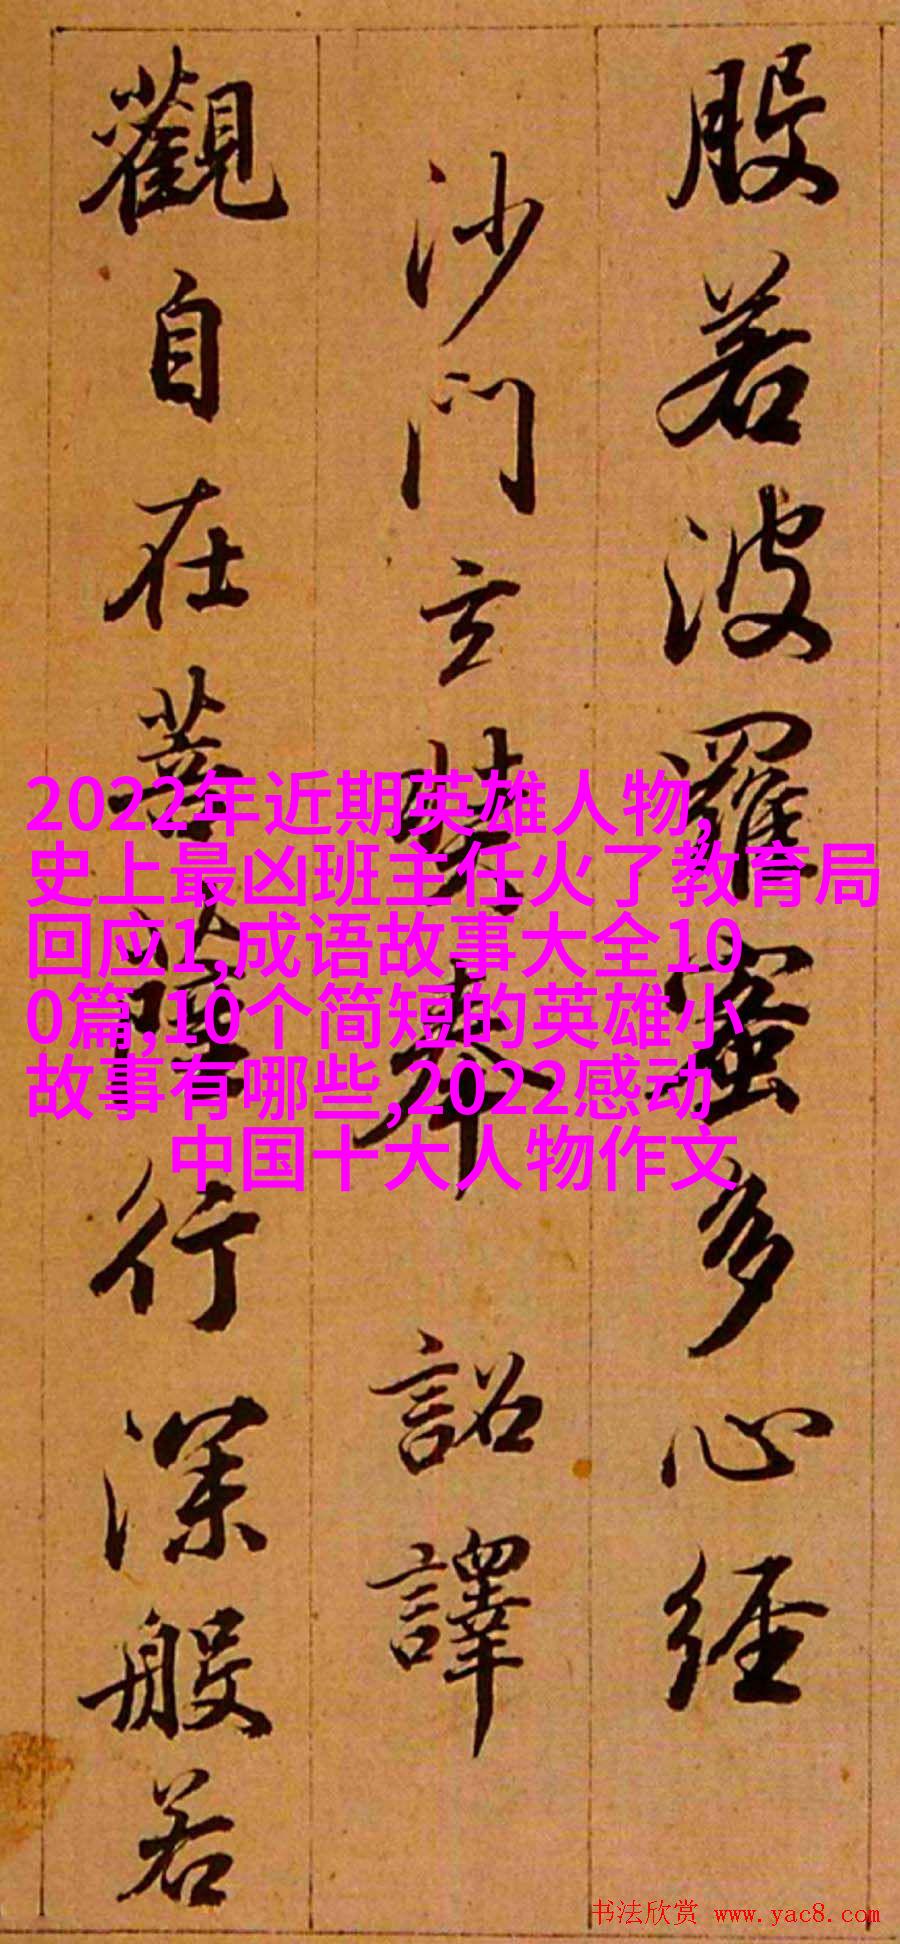 般若波羅蜜多心經
沙門玄奘奉 詔譯
觀自在菩薩行深般若
2022年近期英雄人物,
史上最凶班主任火了教育局
回应1,成语故事大全10
0篇,10个简短的英雄小
故事有哪些,2022感动
中国十大人物作文
书法欣赏 www.yac8.com